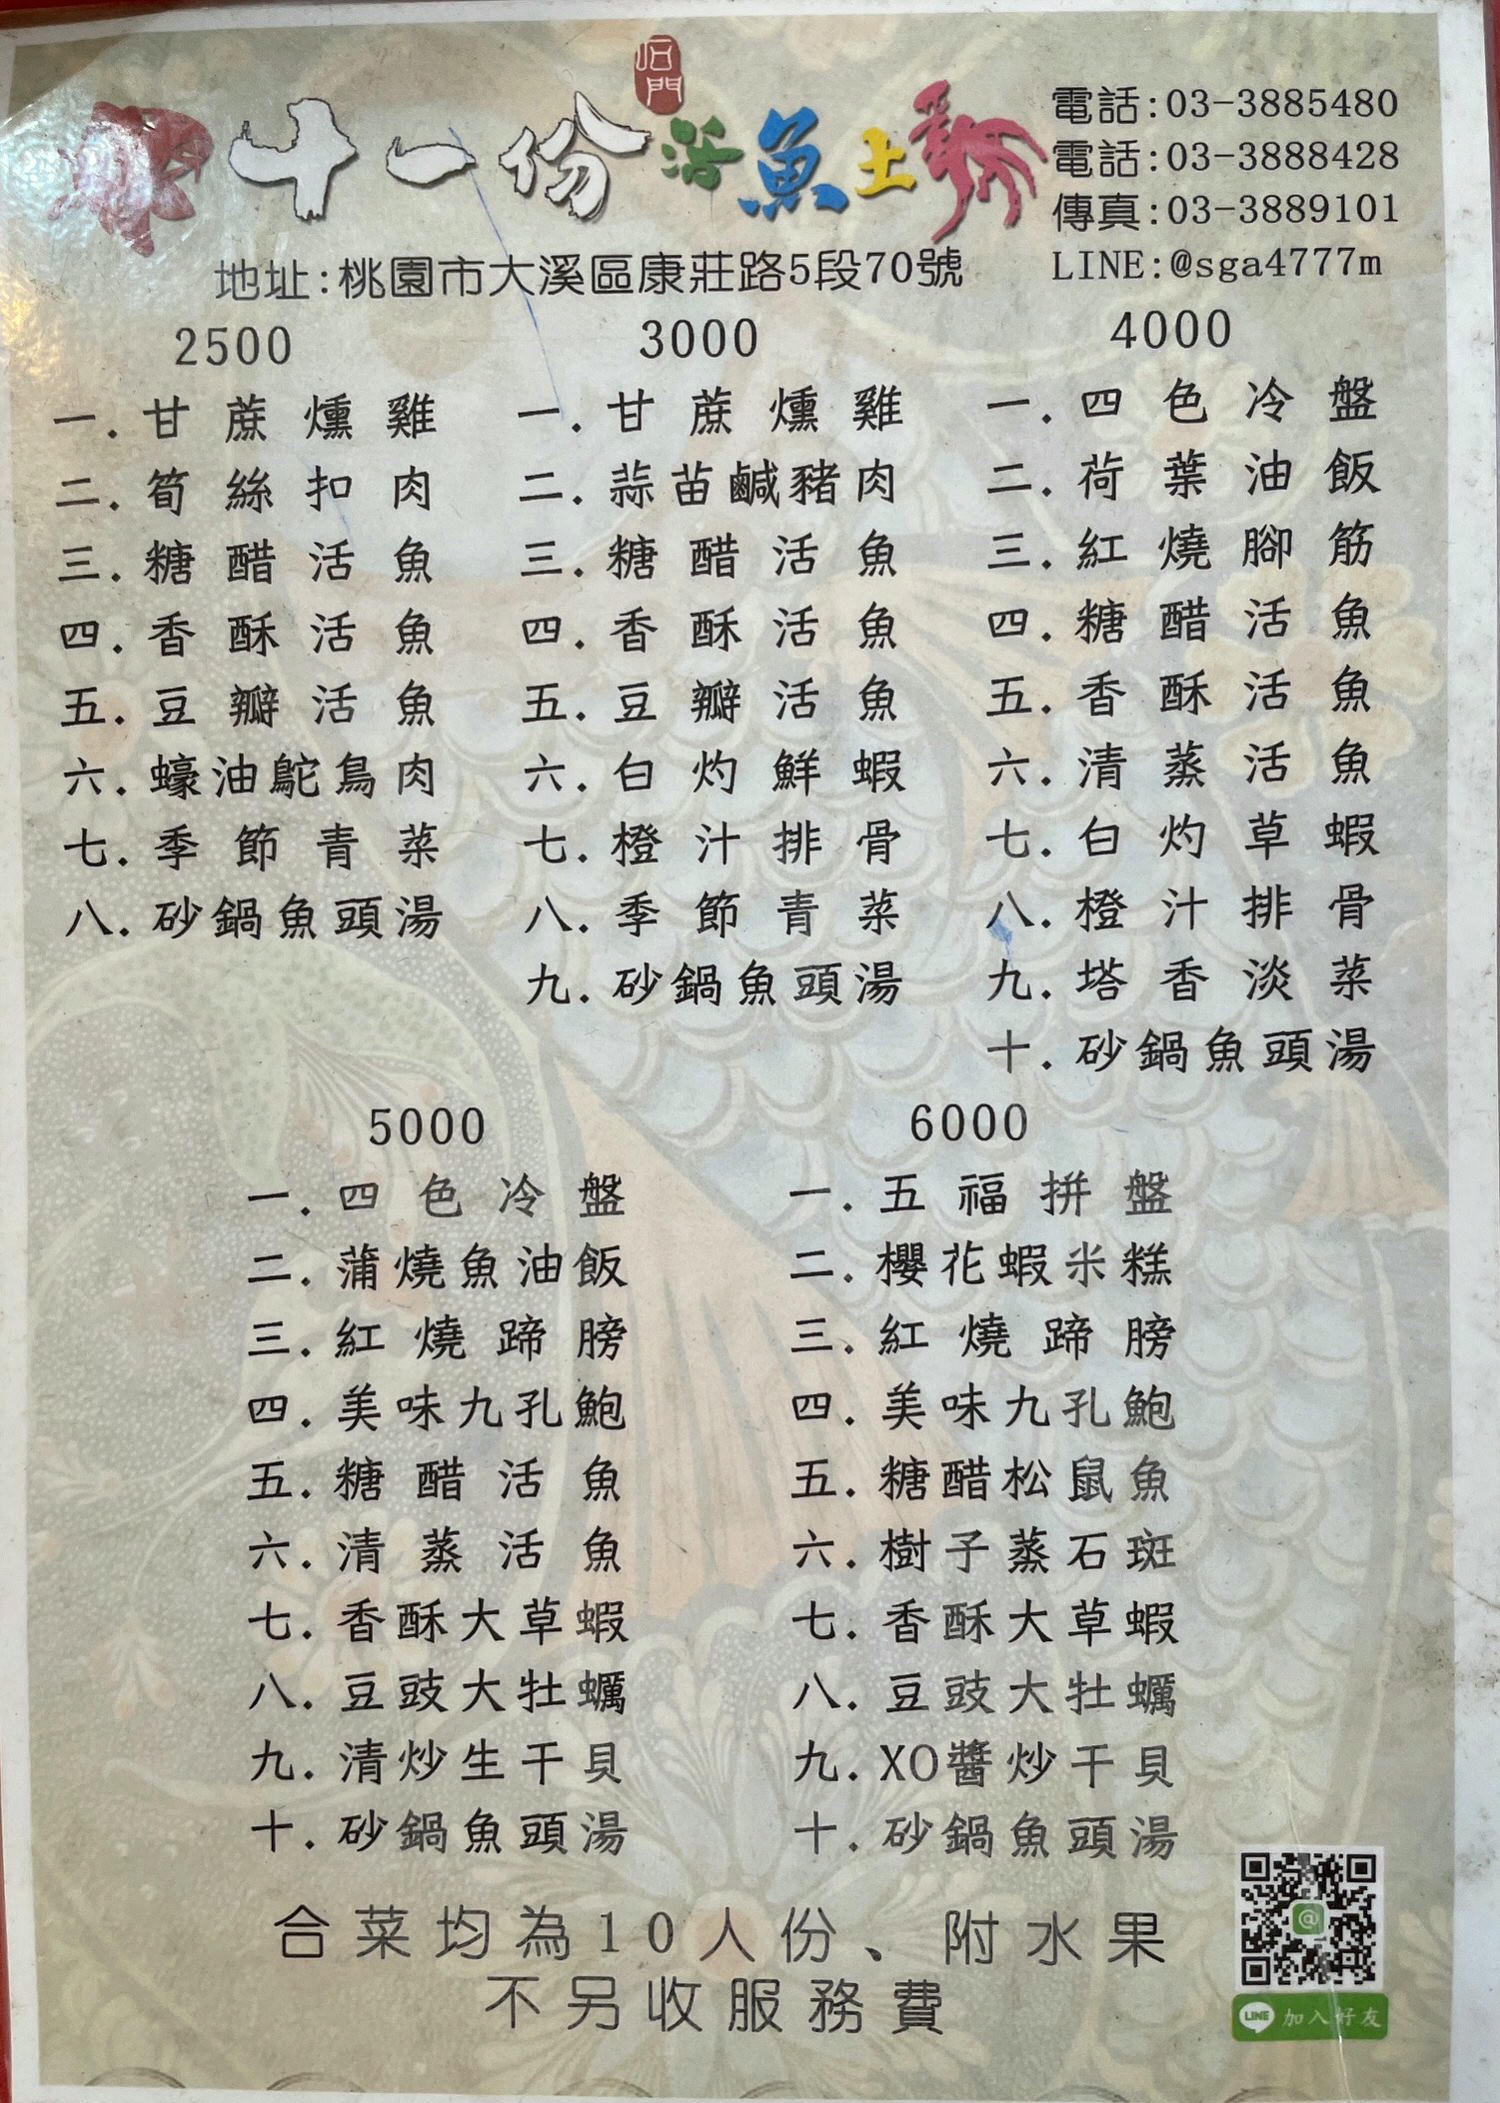 石門
十一份活魚土雞
電話:03-3885480
電話:03-3888428
傳真:03-3889101
LINE:@sga4777m
地址:桃園市大溪區康莊路5段70號
2500
一.甘蔗燻雞
二.筍絲扣肉
三.糖醋活魚
四.香酥活魚
五.豆瓣活魚
六.蠔油鴕鳥肉
七.季節青菜
八.砂鍋魚頭湯
3000
一.甘蔗燻雞
二.蒜苗鹹豬肉
三.糖醋活魚
四.香酥活魚
五.豆瓣活魚
六.白灼鮮蝦
七.橙汁排骨
八.季節青菜
九.砂鍋魚頭湯
4000
一.四色冷盤
二.荷葉油飯
三.紅燒腳筋
四.糖醋活魚
五.香酥活魚
六.清蒸活魚
七.白灼草蝦
八.橙汁排骨
九.塔香淡菜
十.砂鍋魚頭湯
5000
一.四色冷盤
二.蒲燒魚油飯
三.紅燒蹄膀
四.美味九孔鮑
五.糖醋活魚
六.清蒸活魚
七.香酥大草蝦
八.豆豉大牡蠣
九.清炒生干貝
十.砂鍋魚頭湯
6000
一.五福拼盤
二.櫻花蝦米糕
三.紅燒蹄膀
四.美味九孔鮑
五.糖醋松鼠魚
六.樹子蒸石斑
七.香酥大草蝦
八.豆豉大牡蠣
九.XO醬炒干貝
十.砂鍋魚頭湯
合菜均為10人份、附水果
不另收服務費
LINE 加入好友